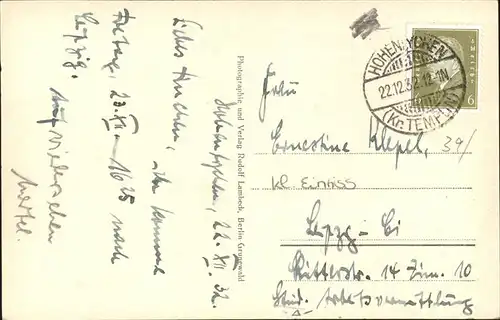 Hohenlychen, 22. XII. 32.
Liebes
Freitag, 23. XII. 16 25 nach
Leipzig.
Auf Wiedersehen
Photographie und Verlag Rudolf Lambeck, Berlin Grunewald
HOHENLYCHEN
22.12.32.12-1N
(Kr. TEMPLIN)
6
Frau
Ernestine Klepel,
39/
kl. Einriss
Leipzg - Ci
Ritterstr. 14 Zim. 10
Stud. Arbeitsvermittlung